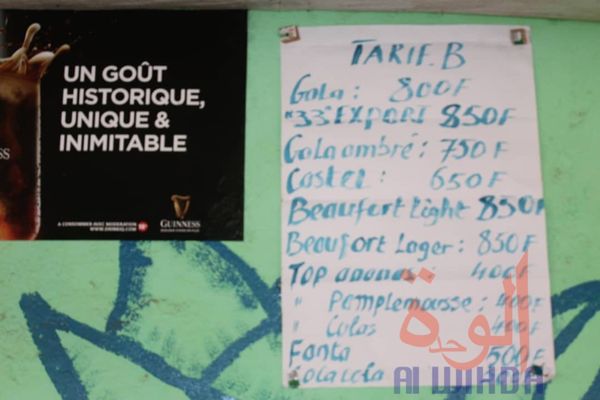 UN GOÛT
HISTORIQUE,
UNIQUE &
INIMITABLE
GUINNESS
A CONSOMMER AVEC MODERATION
TARIF.B
Gala: 800F
"33" EXPORT 850F
Gala ambré: 750F
Castel: 650F
Beaufort Light 850F
Beaufort Lager: 850F
Top ananas 400F
" Pamplemousse: 400F
" Colas 400F
Fanta 500F
Cola Lola
الوحدة
Al WIHDA